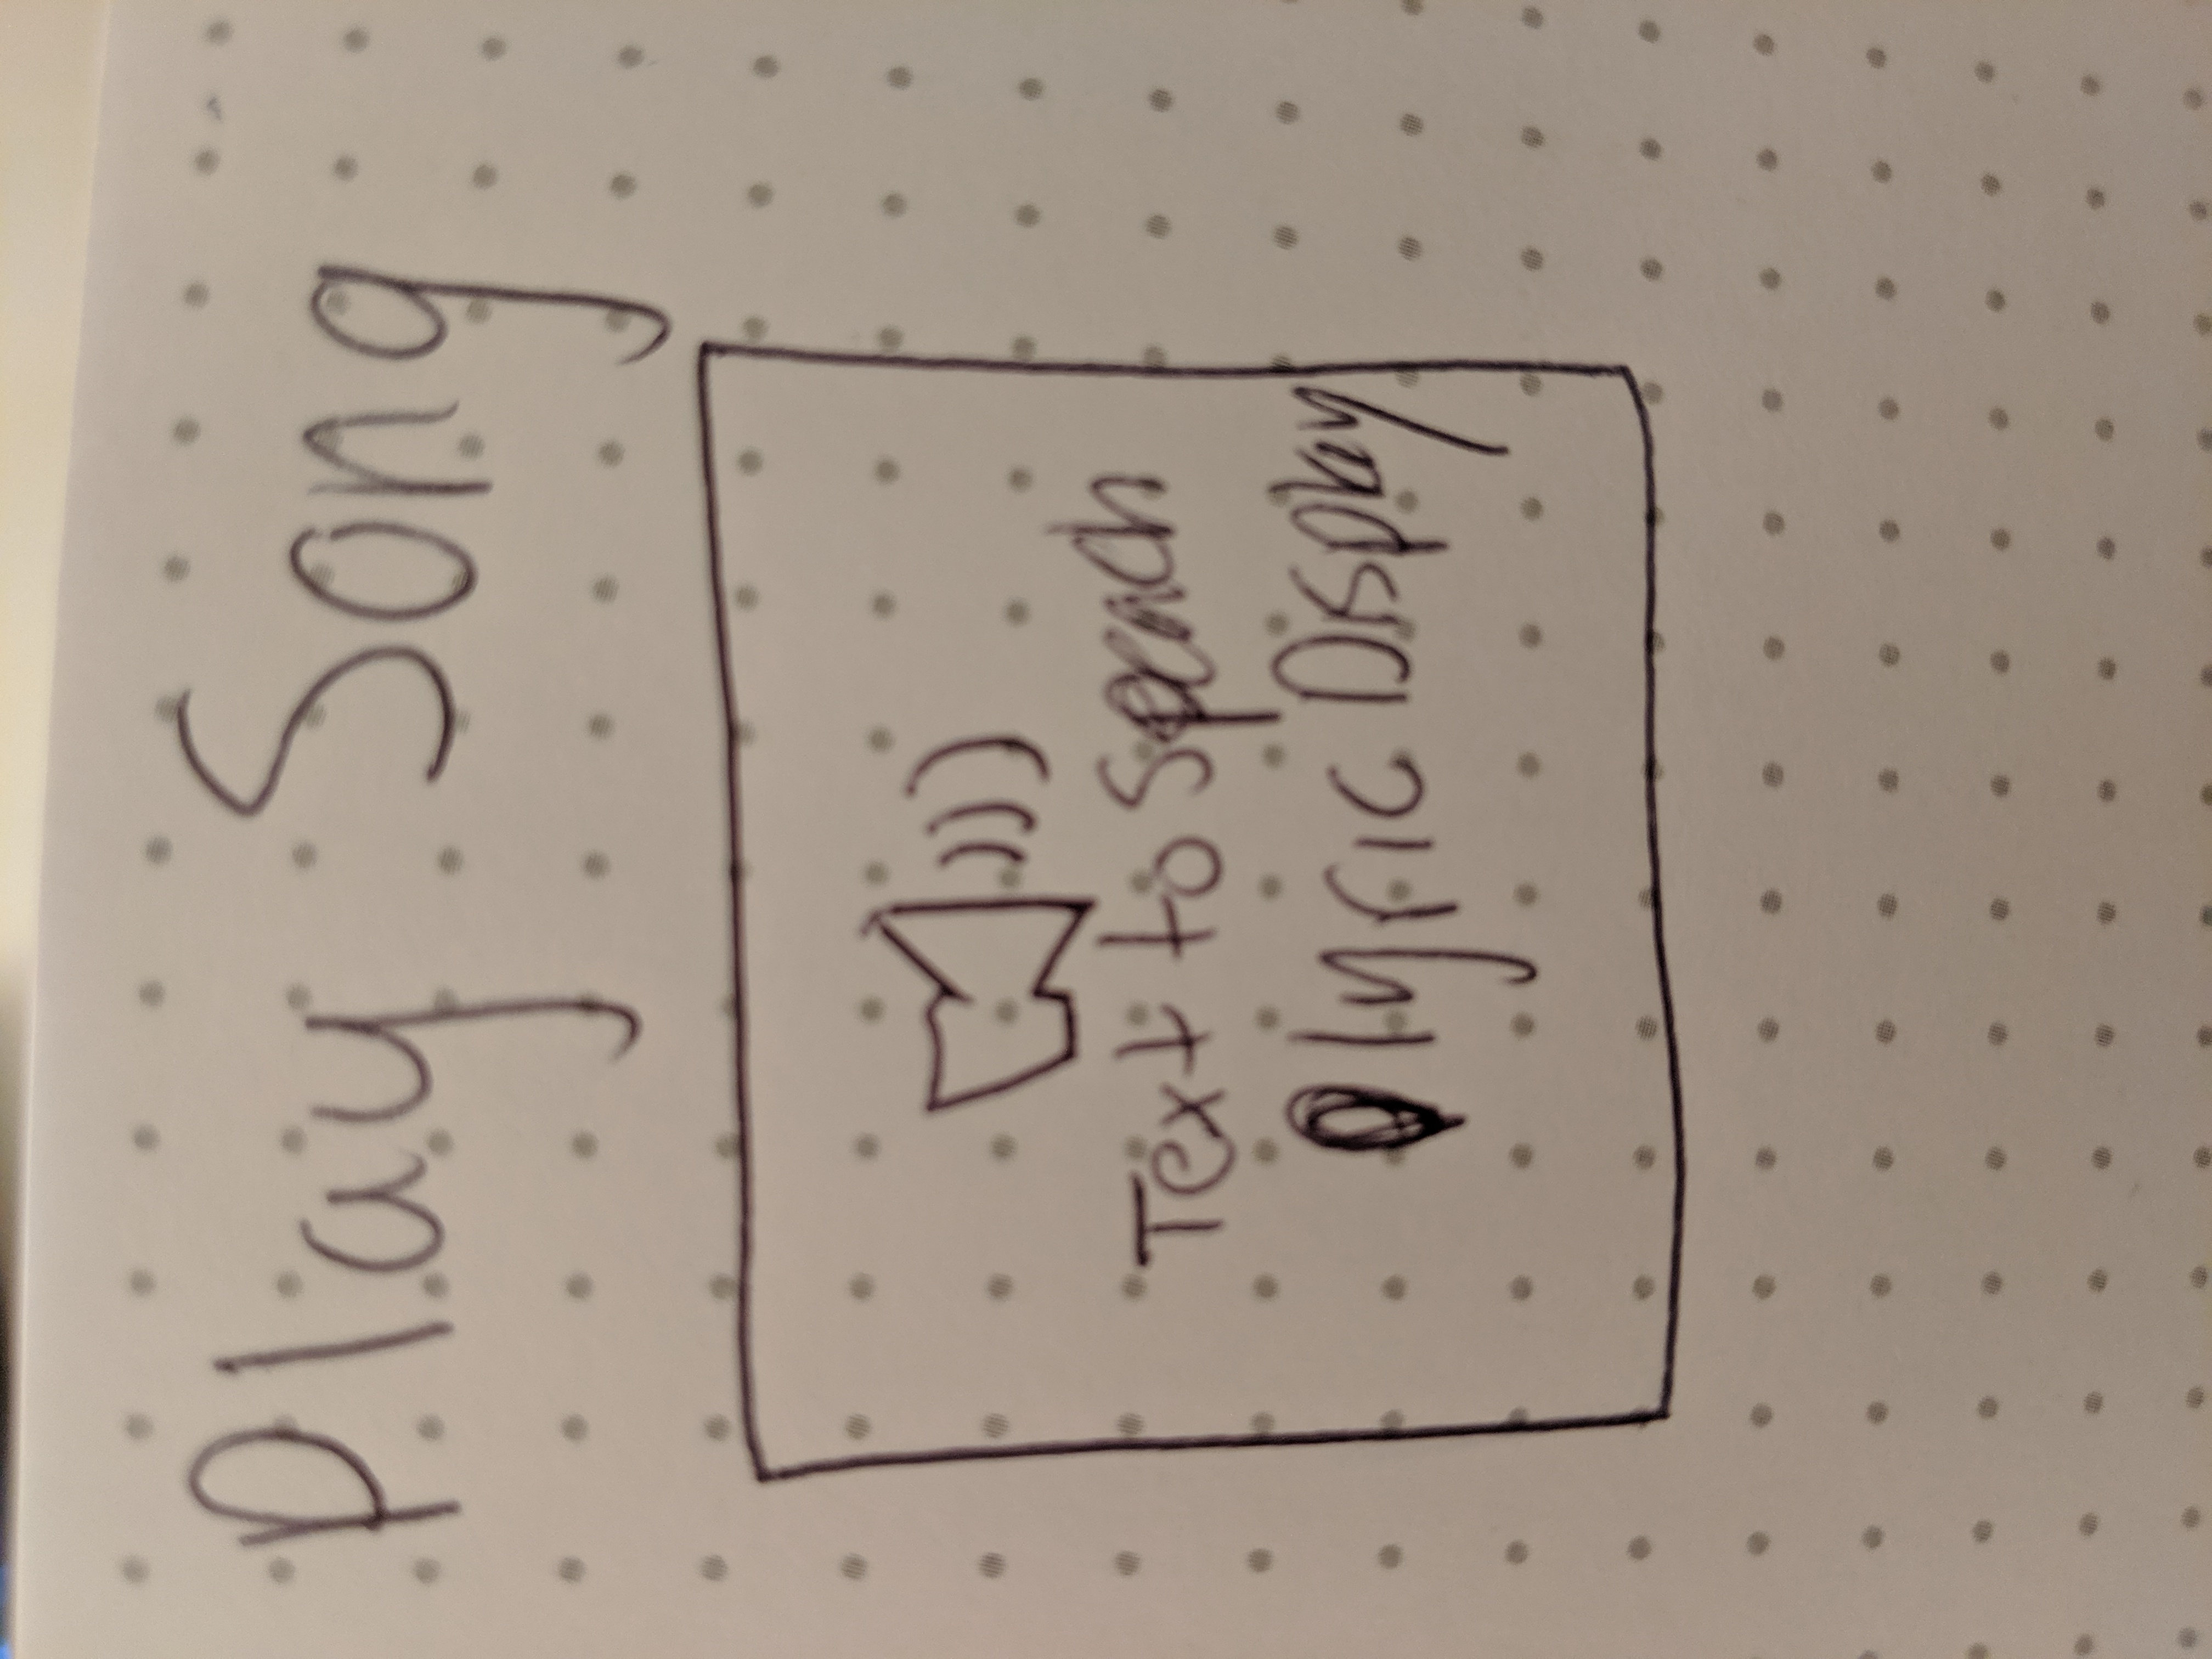 Play Song
Text to Speach
lyric Display